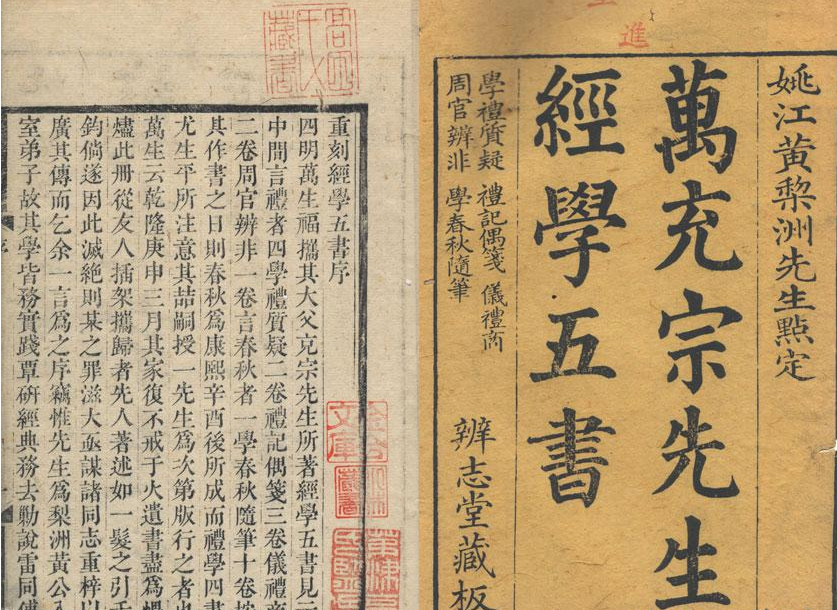 進
姚江黃棃洲先生點定
萬充宗先生
經學五書
學禮質疑 禮記偶箋 儀禮商
周官辨非 學春秋隨筆
辨志堂藏板
藏書
文庫
藏書
重刻經學五書序
四明萬生福攜其大父充宗先生所著經學五書見
中間言禮者四學禮質疑二卷禮記偶箋三卷儀禮商
二卷周官辨非一卷言春秋者一學春秋隨筆十卷按
其作書之日則春秋爲康熙辛酉後所成而禮學四書
尤生平所注意其喆嗣授一先生爲次第版行之者也
萬生云乾隆庚申三月其家復不戒于火遺書盡爲煨
燼此册從友人插架攜歸者先人著述如一髮之引千
鈞倘遂因此滅絕則某之罪滋大亟謀諸同志重梓以
廣其傳而乞余一言爲之序竊惟先生爲梨洲黃公入
室弟子故其學皆務實踐覃研經典務去勦說雷同傅
序